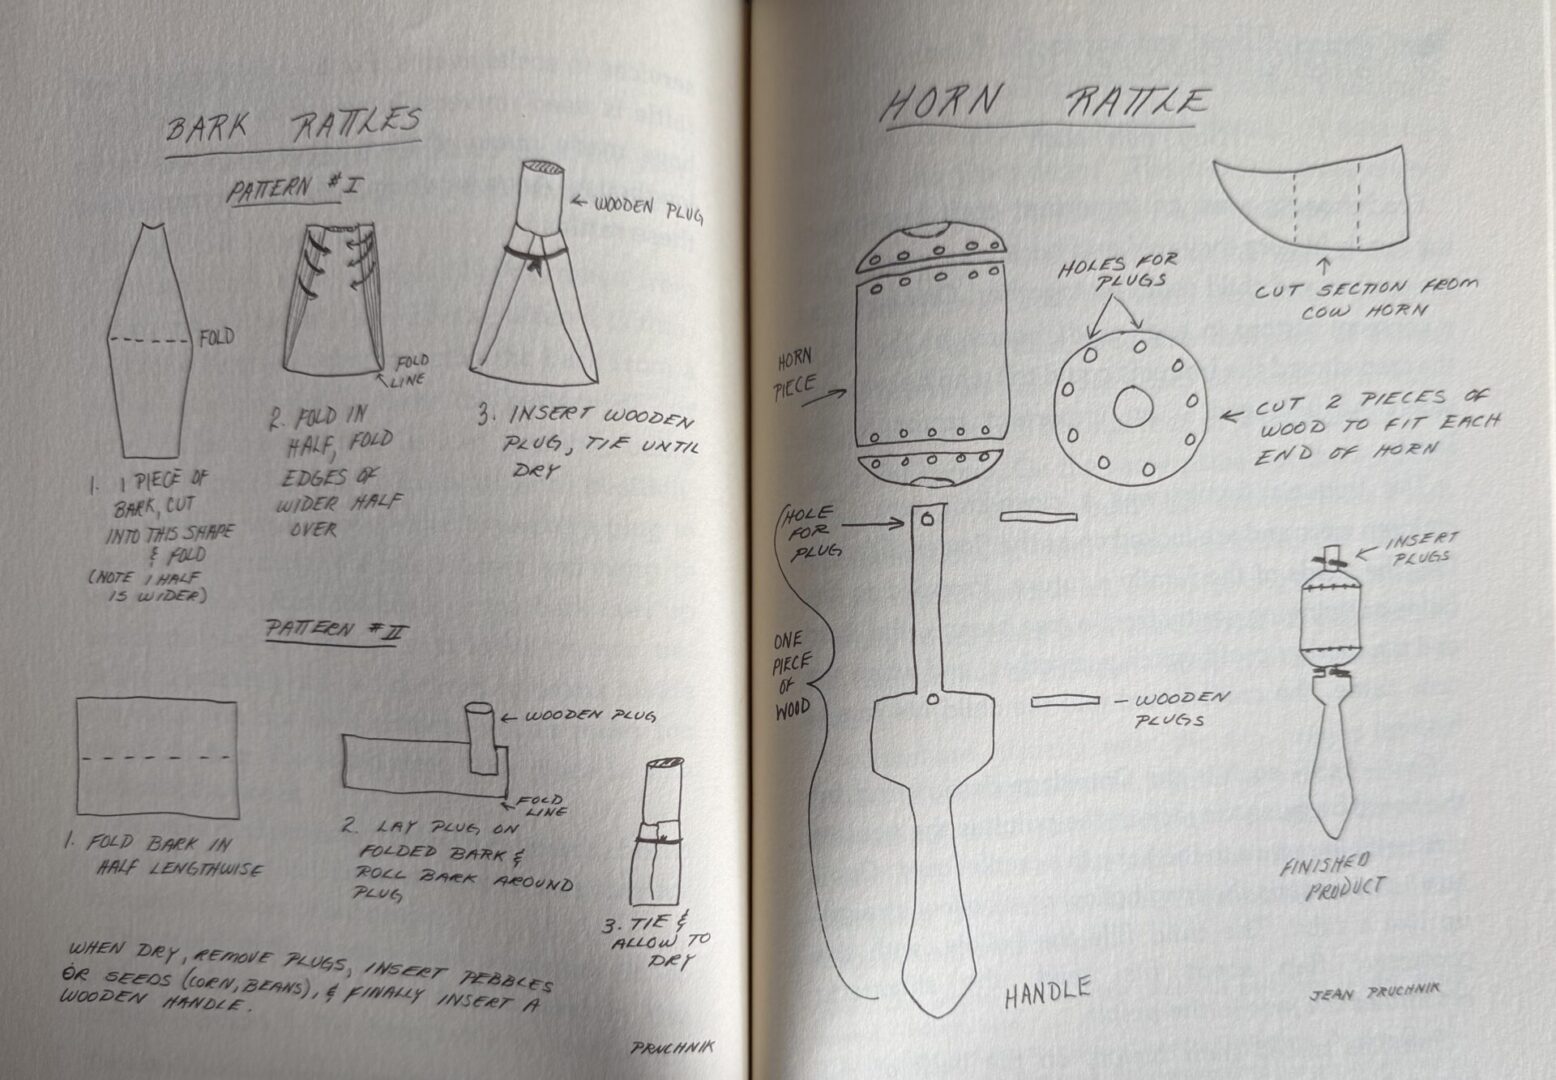 BARK RATTLES
PATTERN #I
FOLD
1. 1 PIECE OF
BARK, CUT
INTO THIS SHAPE
& FOLD
(NOTE 1 HALF
IS WIDER)
FOLD
LINE
2. FOLD IN
HALF, FOLD
EDGES OF
WIDER HALF
OVER
← WOODEN PLUG
3. INSERT WOODEN
PLUG, TIE UNTIL
DRY
PATTERN #II
1. FOLD BARK IN
HALF LENGTHWISE
← WOODEN PLUG
FOLD
LINE
2. LAY PLUG ON
FOLDED BARK &
ROLL BARK AROUND
PLUG
3. TIE &
ALLOW TO
DRY
WHEN DRY, REMOVE PLUGS, INSERT PEBBLES
OR SEEDS (CORN, BEANS), & FINALLY INSERT A
WOODEN HANDLE.
PRUCHNIK
HORN RATTLE
CUT SECTION FROM
COW HORN
HOLES FOR
PLUGS
HORN
PIECE
← CUT 2 PIECES OF
WOOD TO FIT EACH
END OF HORN
HOLE
FOR
PLUG
ONE
PIECE
OF
WOOD
– WOODEN
PLUGS
HANDLE
← INSERT
PLUGS
FINISHED
PRODUCT
JEAN PRUCHNIK